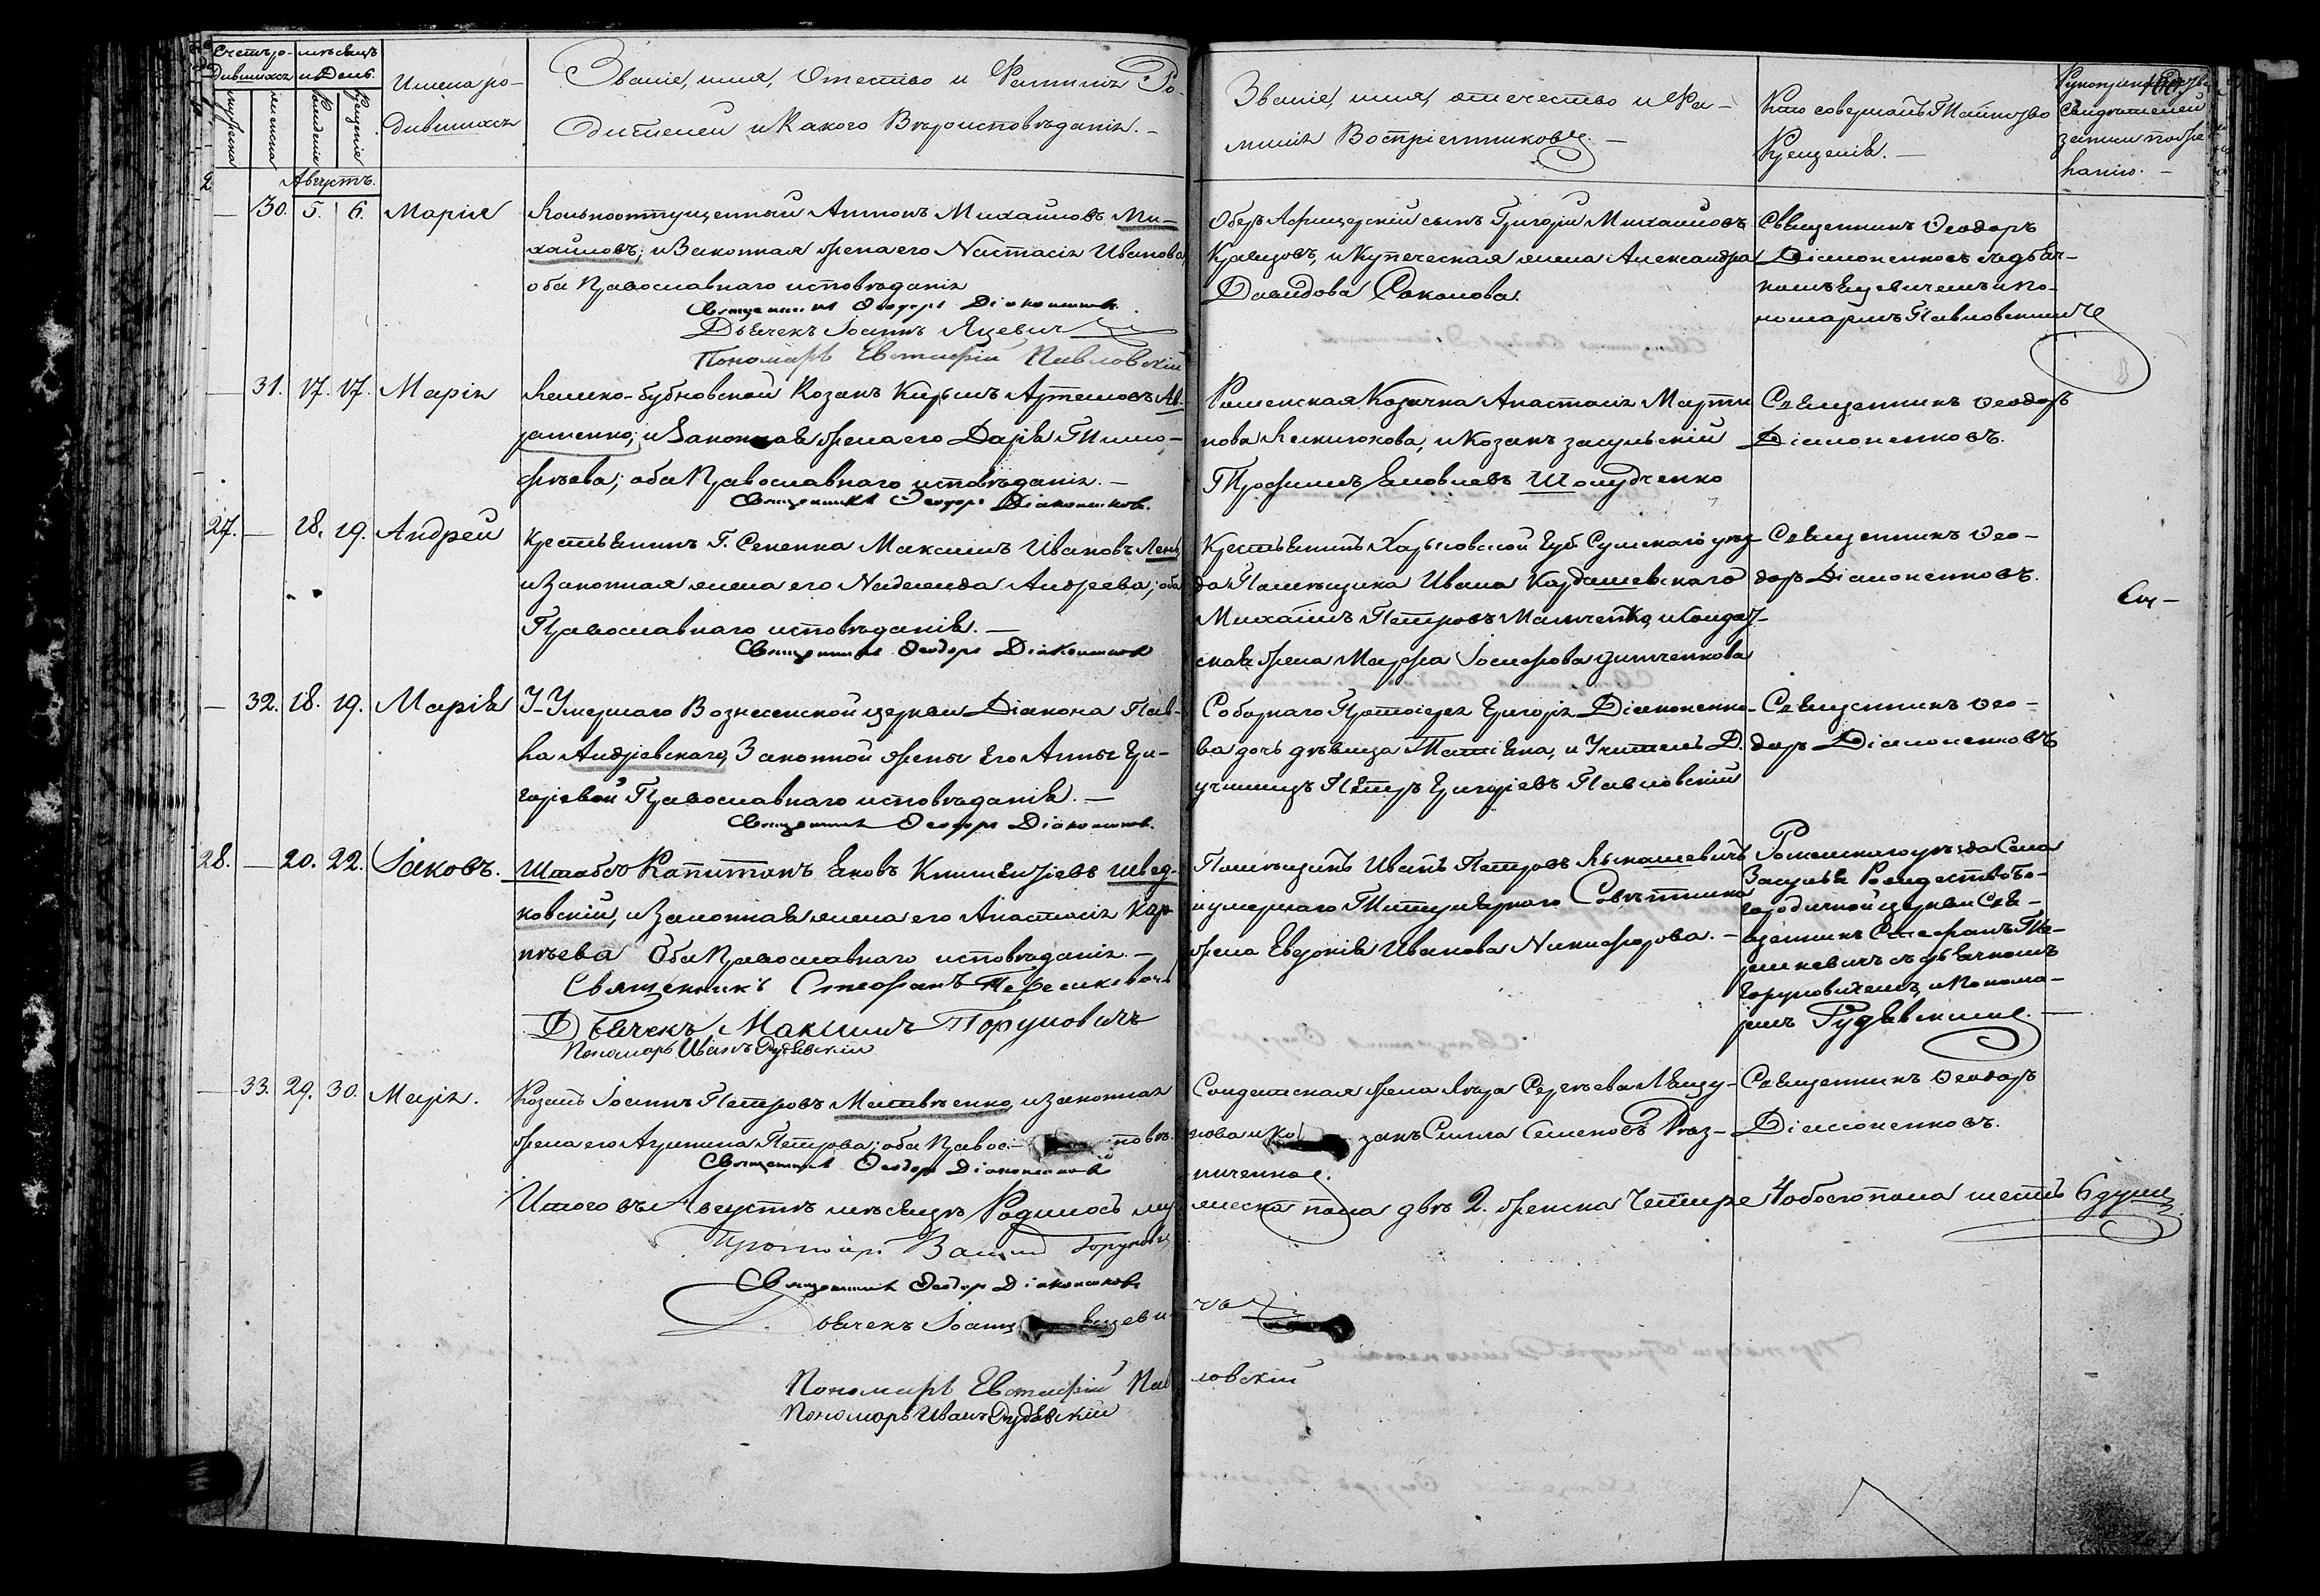 Счетъ ро-
дившихся
мѣсяцъ
и День.
мужеска
женска
Рожденія
Крещенія
Имена ро-
дившихся
Званіе, имя, Отество и Фамилія Ро-
дителей и Какого Вѣроисповѣданія. –
Званіе, имя, отечество и Фа-
милія Воспріемниковъ. –
Кто совершалъ Таинство
Крещенія. –
Свидѣтелей
записи по же
ланію. –
Августъ.
– 30. 5. 6. Марія
Вольноотпущенный Антонъ Михайловъ Ми-
хайловъ; и Законная жена его Настасія Иванова
оба Православнаго исповѣданія
Священникъ Ѳеодоръ Діаконенковъ.
Дьячекъ Іоаннъ Яцевичъ
Пономарь Евстафій Павловскій
Оберъ Афицерскій сынъ Григорій Михайловъ
Кравцовъ, и Купеческая жена Александра
Давидова Соколова.
Священникъ Ѳеодоръ
Діяконенковъ съ дьяч-
комъ Яцевичемъ и по-
номаремъ Павловскимъ
– 31. 17. 17. Марія
Козакъ Артемовъ
и Законная жена его Дарья Тимо-
фѣева; оба Православнаго исповѣданія. –
Священникъ Ѳеодоръ Діаконенковъ.
Роменская Козачка Анастасія Марти
нова и Козакъ засульскій
Трофимъ Яковлевъ Шолудченко
Священникъ Ѳеодоръ
Діяконенковъ.
27. – 18. 19. Андрей
Крестьянинъ Г. Сененка Максимъ Ивановъ
и Законная жена его Надежда Андреева; оба
Православнаго исповѣданія. –
Священникъ Ѳеодоръ Діаконенковъ
Крестьянинъ Харьковской Губ. Сумскаго уѣз
да Помѣщика Ивана Кардашевскаго
Михаилъ Петровъ и Солдат-
ская жена Марфа Іосифова
Священникъ Ѳео-
доръ Діяконенковъ.
– 32. 18. 19. Марія
У Умершаго Вознесенской церкви Діакона Пав-
ла Андріевскаго, Законной жены Его Анны Гри-
горіевой Православнаго исповѣданія. –
Священникъ Ѳеодоръ Діаконенковъ.
Соборнаго Протоіерея Григорія Діяконенко-
ва дочь дѣвица Татіяна, и Учитель Д.
училищъ Петръ Григоріевъ Павловскій
Священникъ Ѳео-
доръ Діяконенковъ
28. – 20. 22. Іаковъ.
Штабсъ Капитанъ Яковъ Климентіевъ Швед-
ковскій, и Законная жена его Анастасія Кар-
пѣева Оба Православнаго исповѣданія. –
Священникъ Стефанъ
Дьячекъ Максимъ Горуновичъ
Пономарь Иванъ Рудѣвскій
Помѣщикъ Иванъ Петровъ
и умершаго Титулярнаго Совѣтника
жена Евдокія Иванова Никифорова. –
Роменскаго уѣзда Села
Засулья Рождество-Бо-
городичной церкви Свя-
щенникъ Стефанъ
съ дьячкомъ
Горуновичемъ, и Понома-
ремъ Рудѣвскимъ. –
– 33. 29. 30. Марія.
Козакъ Іоаннъ Петровъ Матвѣенко, и законная
жена его Агрипина Петрова; оба Правос. повѣ.
Священникъ Ѳеодоръ Діаконенковъ
Солдатская жена Сергѣева
нова и Козакъ Семеновъ Раз-
ниченко.
Священникъ Ѳеодоръ
Діяконенковъ.
Итого въ Августѣ мѣсяцѣ Родилось му
жеска пола двѣ 2. женска Четыре 4 обоего пола шесть 6 душъ
Протоіерей Горуновичъ
Священникъ Ѳеодоръ Діаконенковъ
Дьячекъ Іоаннъ Яцеви-
чъ
Пономарь Евстафій Пав
ловскій
Пономарь Иванъ Рудѣвскій